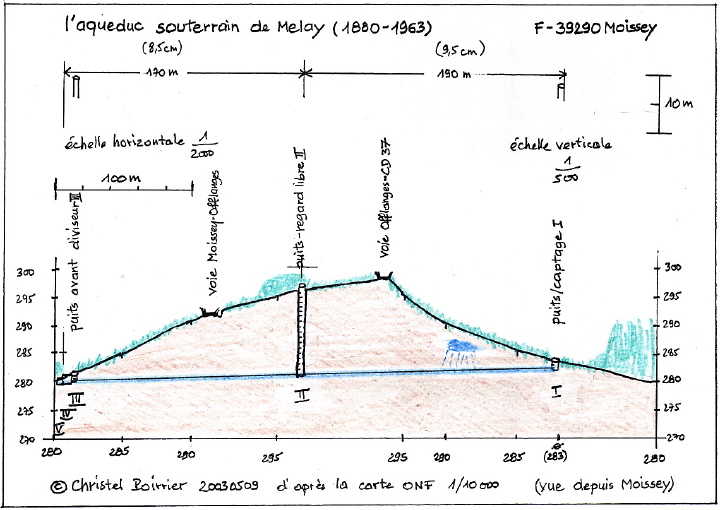 l'aqueduc souterrain de Melay (1880-1963) F-39290 Moissey
(8,5cm) (9,5cm)
170 m 190 m
10m
échelle horizontale 1/2000 échelle verticale 1/500
100m
puits avant diviseur III
voie Moissey-Offlanges
puits-regard libre II
voie Offlanges-CD 37
puits/captage I
300 300
295 295
290 290
285 285
280 280
275 275
270 270
V IV III II I
280 285 290 295 295 290 285 (283) 280
© Christel Poirrier 20030509 d'après la carte ONF 1/10000 (vue depuis Moissey)